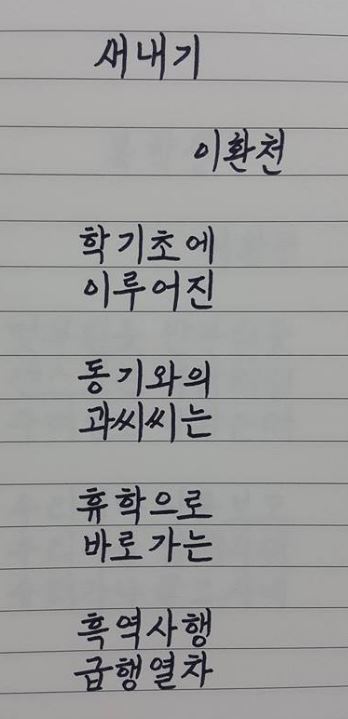 새내기
이환천
학기초에
이루어진
동기와의
과씨씨는
휴학으로
바로가는
흑역사행
급행열차